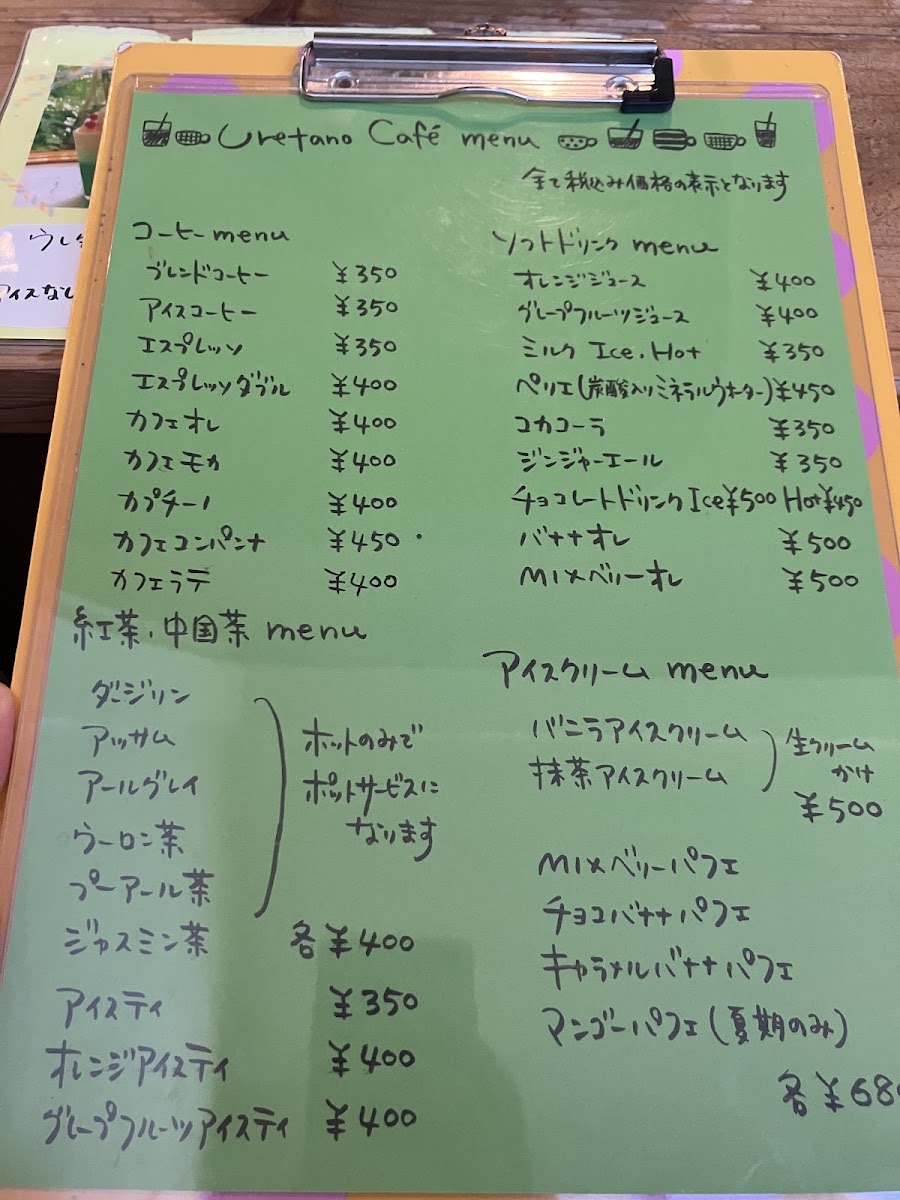 Uretano Café menu
全て税込み価格の表示となります
コーヒー menu
ブレンドコーヒー ¥350
アイスコーヒー ¥350
エスプレッソ ¥350
エスプレッソダブル ¥400
カフェオレ ¥400
カフェモカ ¥400
カプチーノ ¥400
カフェコンパンナ ¥450
カフェラテ ¥400
紅茶・中国茶 menu
ダージリン
アッサム
アールグレイ
ウーロン茶
プーアール茶
ホットのみで
ポットサービスに
なります
ジャスミン茶 各 ¥400
アイスティ ¥350
オレンジアイスティ ¥400
グレープフルーツアイスティ ¥400
ソフトドリンク menu
オレンジジュース ¥400
グレープフルーツジュース ¥400
ミルク Ice.Hot ¥350
ペリエ(炭酸入りミネラルウォーター) ¥450
コカコーラ ¥350
ジンジャーエール ¥350
チョコレートドリンク Ice¥500 Hot¥450
バナナオレ ¥500
MIXベリーオレ ¥500
アイスクリーム menu
バニラアイスクリーム
抹茶アイスクリーム
生クリーム
かけ
¥500
MIXベリーパフェ
チョコバナナパフェ
キャラメルバナナパフェ
マンゴーパフェ(夏期のみ)
各 ¥68
ウレ
アイスなし